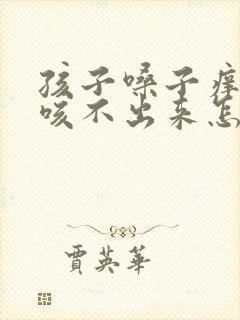 孩子嗓子痒
咳不出来怎
賈英華